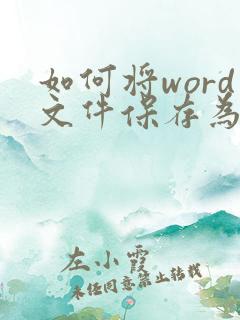 如何将word
文件保存为
左小霞
未经同意禁止转载